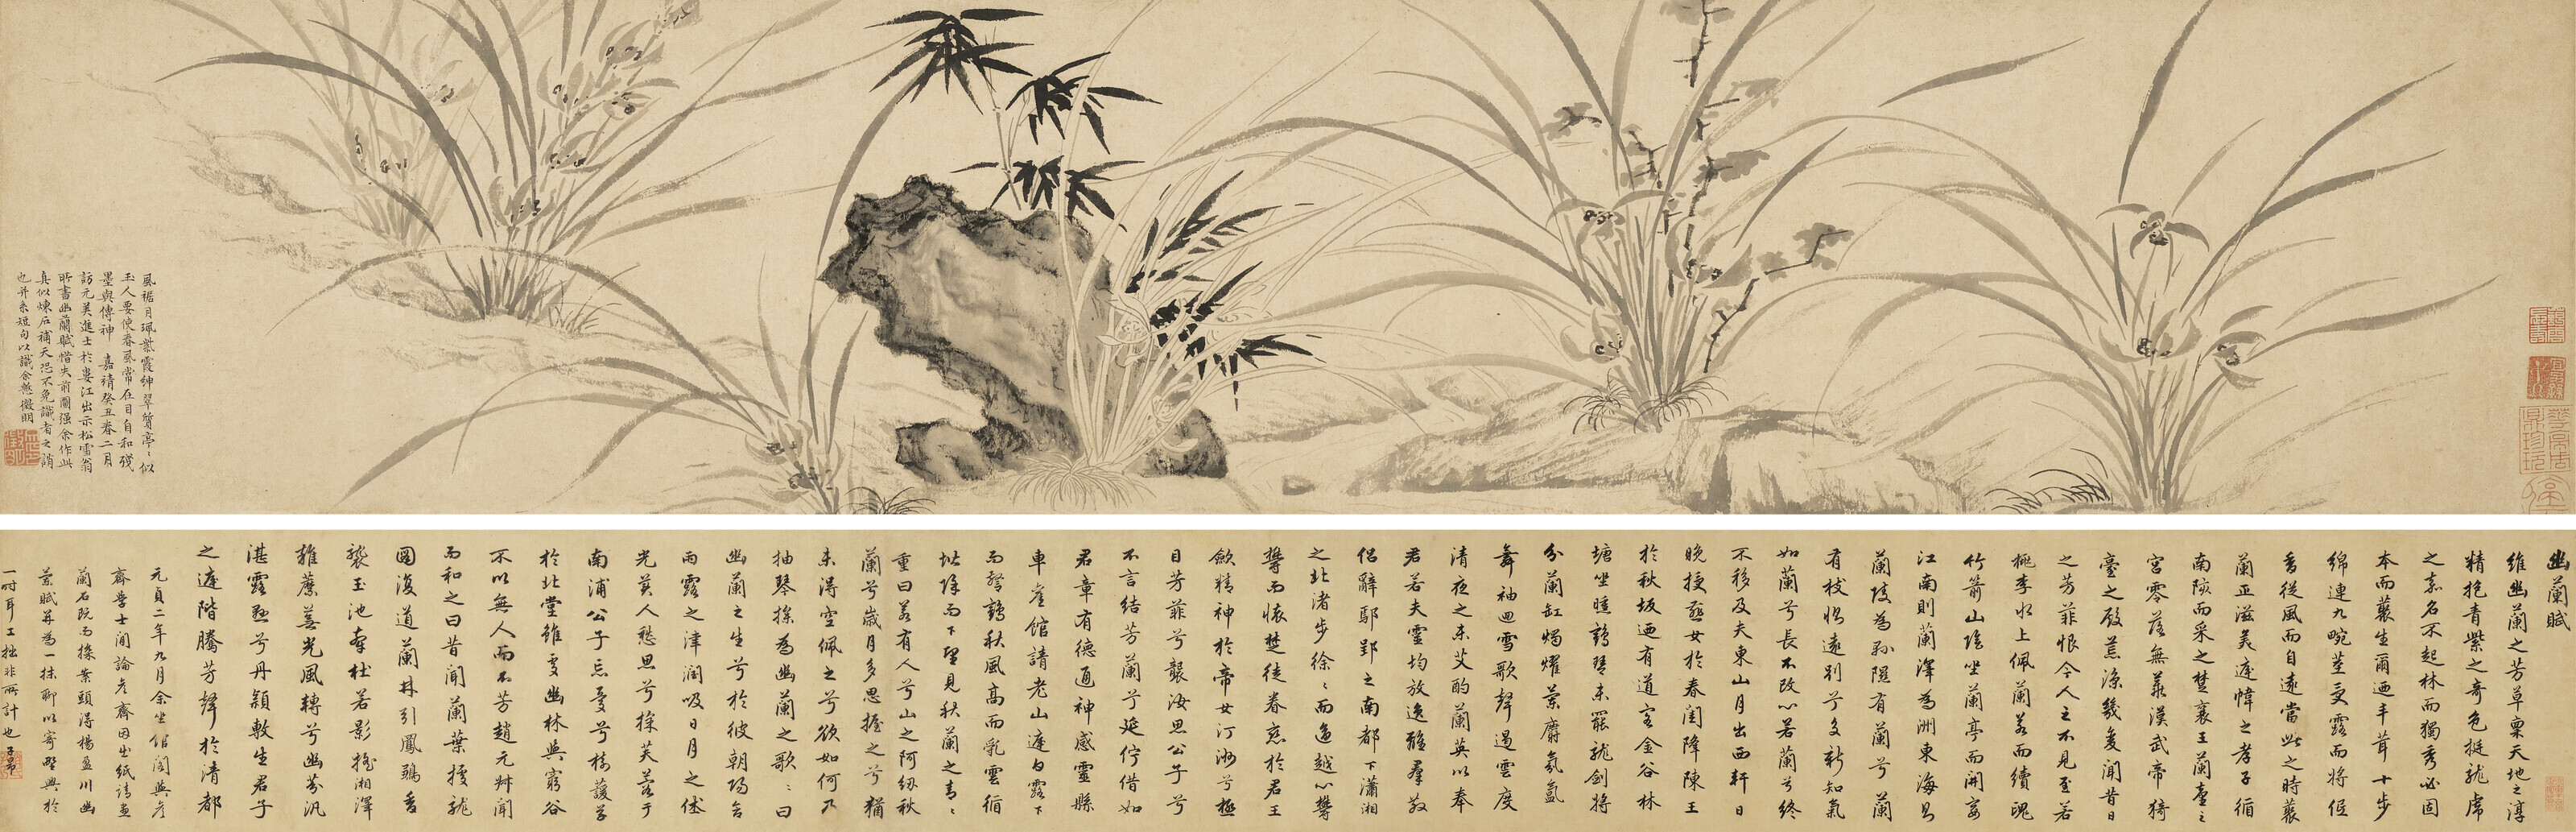 風裾月珮紫霞紳翠質亭々似
玉人要使春風常在目自和殘
墨與傳神 嘉靖癸丑春二月
訪元美進士於婁江出示松雪翁
所書幽蘭賦惜失前圖強余作此
真似煉石補天恐不免識者之誚
也并系短句以識余愧徵明
幽蘭賦
維幽蘭之芳草稟天地之淳
精抱青紫之奇色挺龍虎
之嘉名不起林而獨秀必固
本而叢生爾迺丰茸十步
綿連九畹莖受露而將低
香從風而自遠當此之時叢
蘭正滋美庭幃之孝子循
南陔而采之楚襄王蘭臺之
宮零落無叢漢武帝猗
臺之殿荒涼幾變聞昔日
之芳菲恨今人之不見至若
桃李水上佩蘭若而續魂
竹箭山陰坐蘭亭而開宴
江南則蘭澤為洲東海則
蘭陵為縣隰有蘭兮蘭
有枝贈遠別兮交新知氣
如蘭兮長不改心若蘭兮終
不移及夫東山月出西軒日
晚授燕女於春閨降陳王
於秋坂迺有道客金谷林
塘坐曛鶴琴未罷龍劍將
分蘭缸燭耀蘭麝氛氳
舞袖迴雪歌聲遏雲度
清夜之未艾酌蘭英以奉
君若夫靈均放逐離羣散
侶辭鄢郢之南都下瀟湘
之北渚步徐々而適越心鬱
鬱而懷楚徒眷戀於君王
斂精神於帝女汀洲兮極
目芳菲兮襲汝思公子兮
不言結芳蘭兮延佇借如
君章有德通神感靈懸
車舊館請老山庭白露下
而警鶴秋風高而亂雲循
階除而下望見秋蘭之青々
重曰若有人兮山之阿紉秋
蘭兮歲月多思握之兮猶
未得空佩之兮欲如何乃
抽琴操為幽蘭之歌々曰
幽蘭之生兮於彼朝陽含
雨露之津潤吸日月之休
光美人愁思兮採芙蓉于
南浦公子忘憂兮樹萱草
於北堂雖處幽林與窮谷
不以無人而不芳趙元叔聞
而和之曰昔聞蘭葉據龍
圖復道蘭林引鳳鶵香
襲玉池牽杜若影搖湘澤
雜蘼蕪光風轉兮幽芬汎
湛露懸兮丹穎敷生君子
之庭階騰芳聲於清都
元貞二年九月余坐館閣與彥
齋學士閒論彥齋因出紙請畫
蘭石既而撿案頭得楊盈川幽
蘭賦并為一抹聊以寄野興於
一時耳工拙非所計也子昂